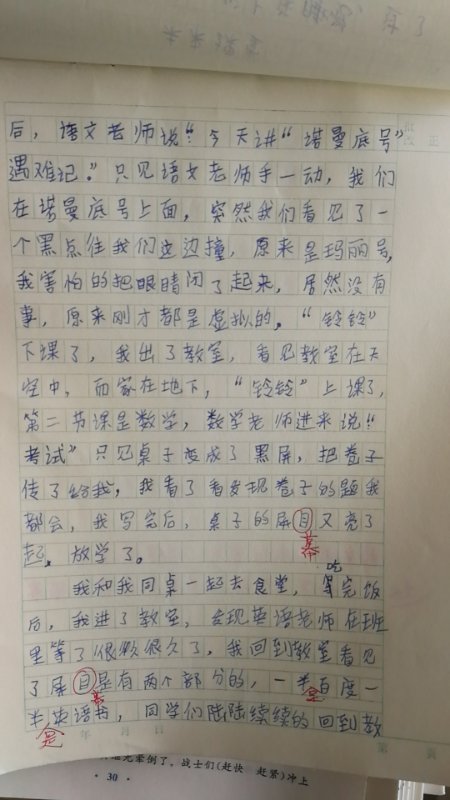 后，语文老师说“今天讲“诺曼底号”
遇难记。”只见语文老师手一动，我们
在诺曼底号上面，突然我们看见了一
个黑点往我们这边撞，原来是玛丽号，
我害怕的把眼睛闭了起来，居然没有
事，原来刚才都是虚拟的。“铃铃”
下课了，我出了教室，看见教室在天
空中，而家在地下，“铃铃”上课了，
第二节课是数学，数学老师进来说“
考试”只见桌子变成了黑屏，把卷子
传了给我，我看了看发现卷子的题我
都会，我写完后，桌子的屏目又亮了
幕
起，放学了。
吃
我和我同桌一起去食堂，完饭
后，我进了教室，发现英语老师在班
里等了很久很久了，我回到教室看见
了屏目是有两个部分的，一半百度一
幕
是
半英语书，同学们陆陆续续的回到教
是
年 月 日
第 页
晕倒了。战士们(赶快 赶紧)冲上
· 30 ·